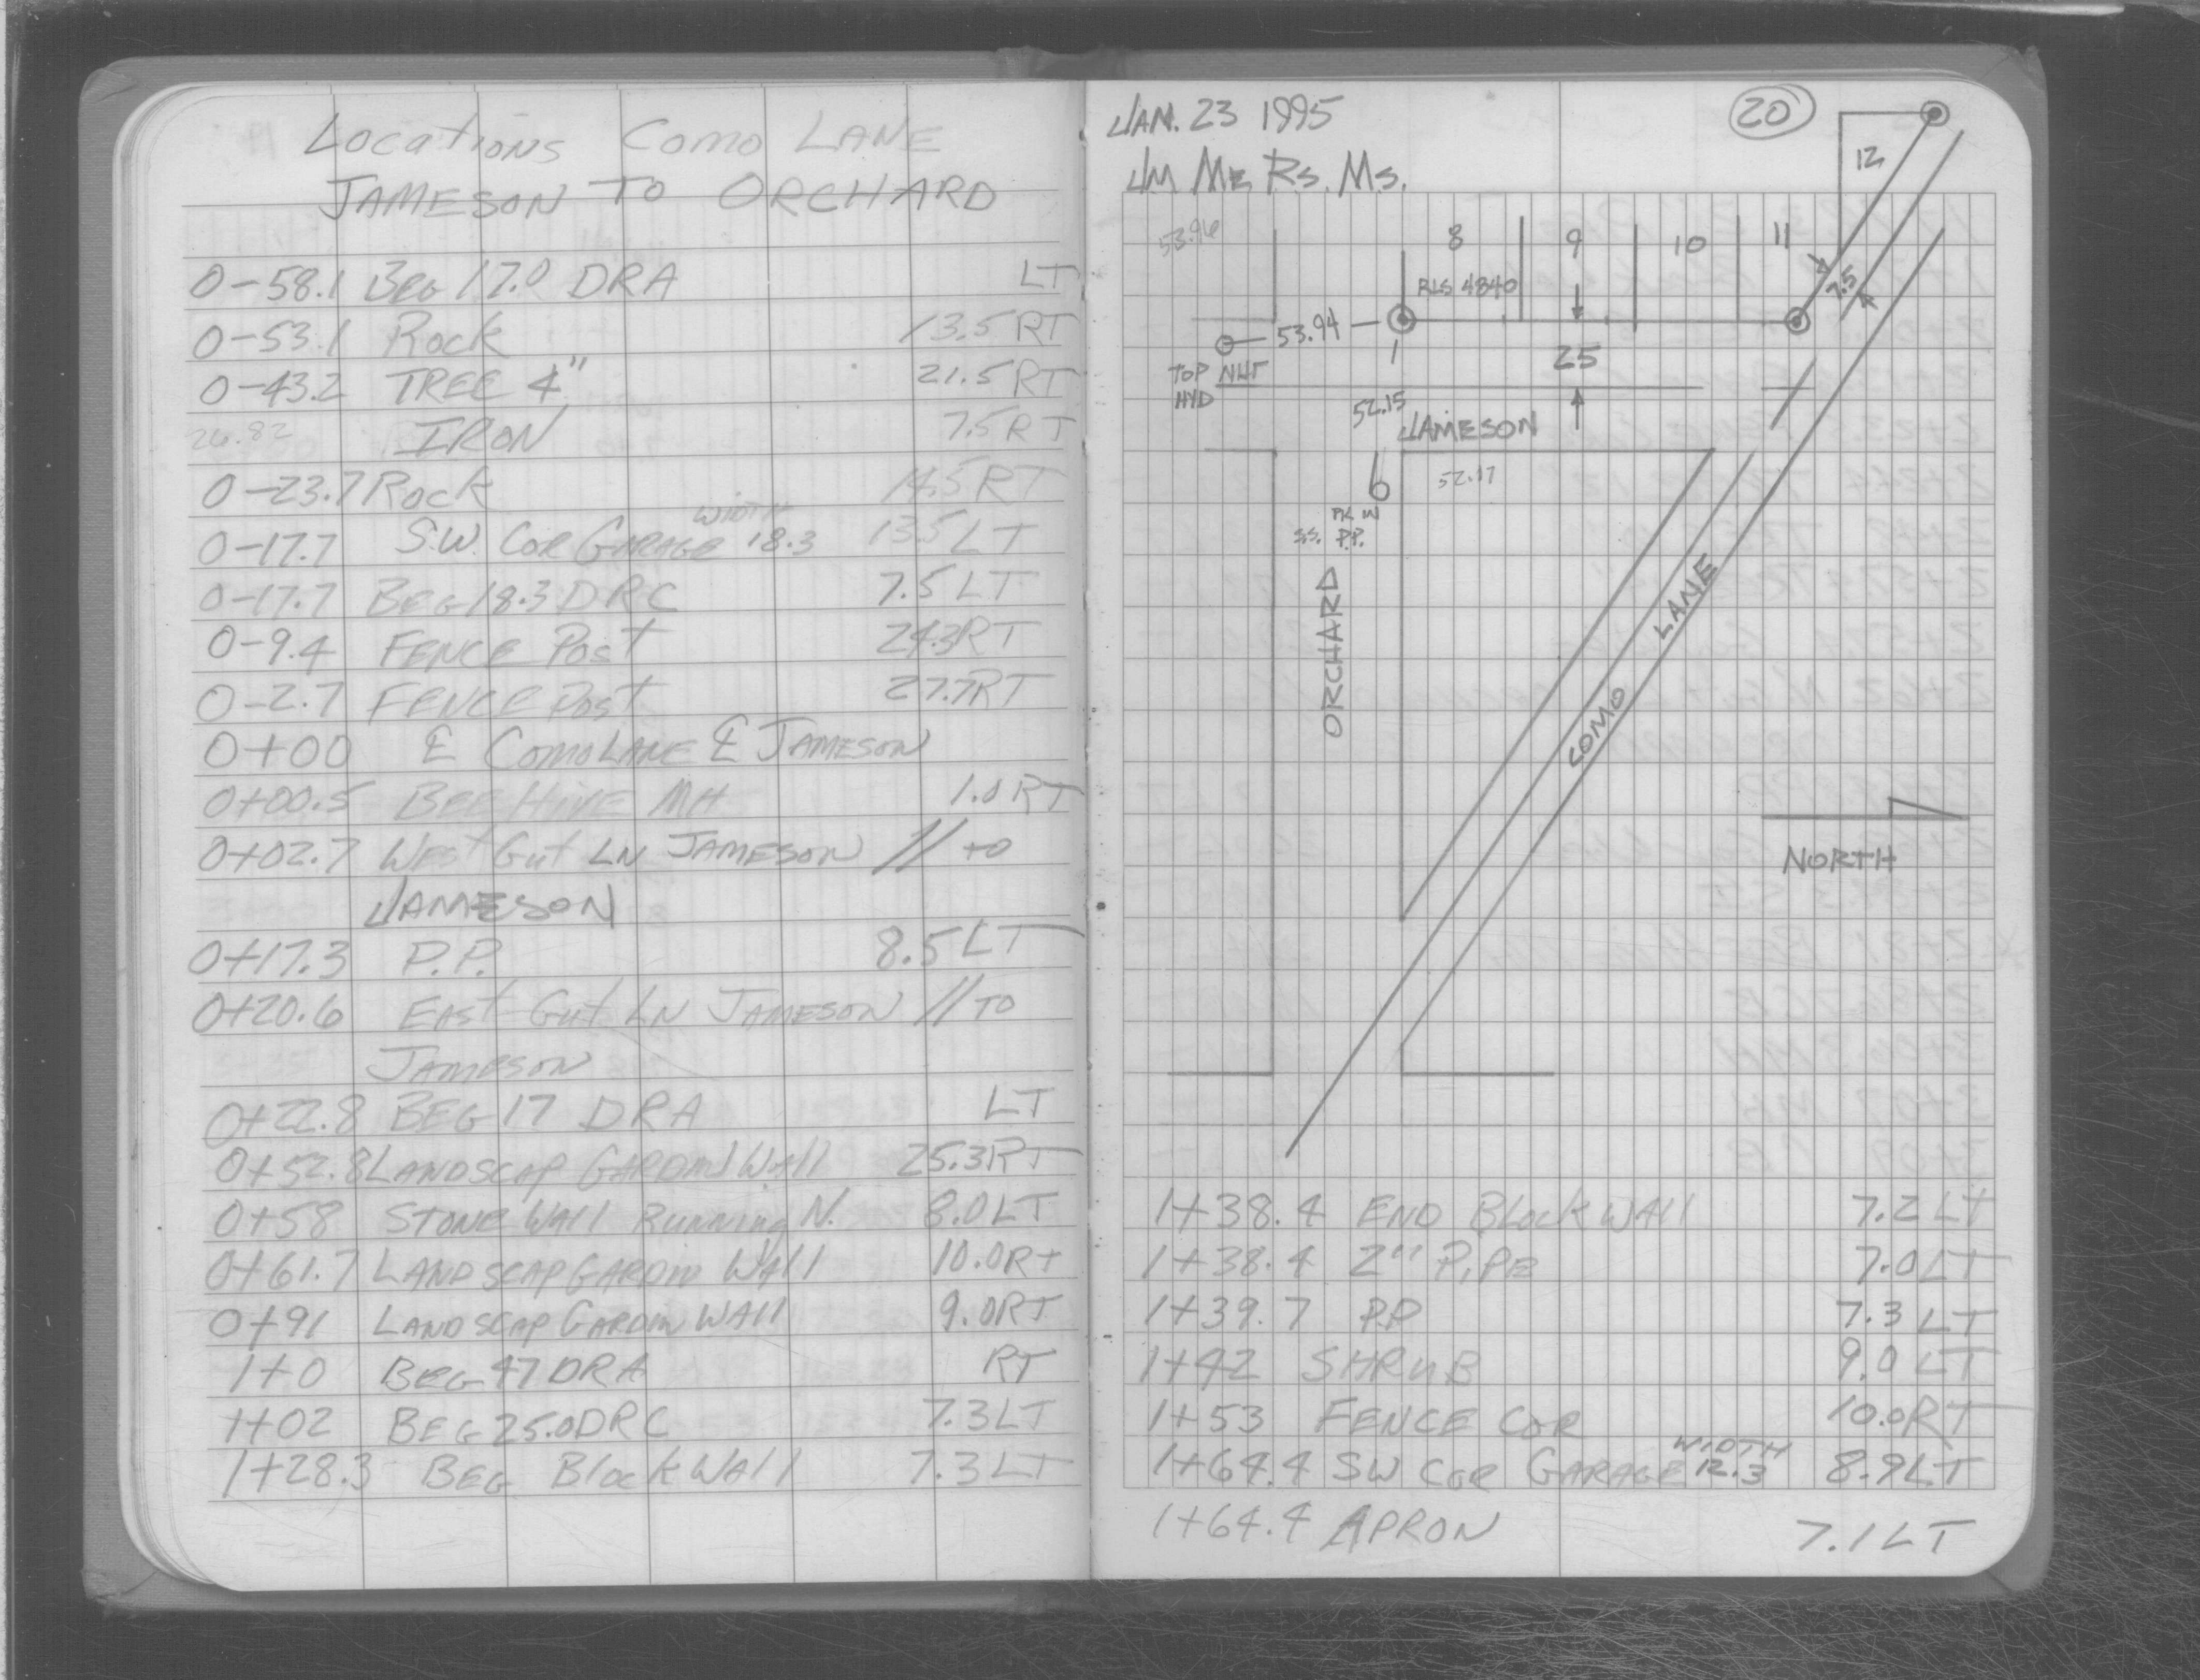 Locations Como Lane
Jameson to Orchard
0-58.1 Beg 17.0 DRA LT
0-53.1 Rock 13.5 RT
0-43.2 TREE 4" 21.5 RT
26.82 IRON 7.5 RT
0-23.7 Rock 14.5 RT
WIDTH
0-17.7 S.W. Cor Garage 18.3 13.5 LT
0-17.7 Beg 18.3 DRC 7.5 LT
0-9.4 Fence Post 24.3 RT
0-2.7 Fence Post 27.7 RT
0+00 ℄ Como Lane ℄ Jameson
0+00.5 Bee Hive MH 1.0 RT
0+02.7 West Gut LN Jameson // to
Jameson
0+17.3 P.P. 8.5 LT
0+20.6 East Gut LN Jameson // to
Jameson
0+22.8 Beg 17 DRA LT
0+52.8 Landscap Gardin Wall 25.3 RT
0+58 Stone Wall Running N. 8.0 LT
0+61.7 Landscap Gardin Wall 10.0 RT
0+91 Landscap Gardin Wall 9.0 RT
1+0 Beg 47 DRA RT
1+02 Beg 25.0 DRC 7.3 LT
1+28.3 Beg Block Wall 7.3 LT
JAN. 23 1995
20
JM ME RS. MS.
12
53.96
8 9 10 11
RLS 4840
7.5
53.94
1
25
TOP NUT
HYD
52.15
JAMESON
52.17
PK IN
S.S. P.P.
ORCHARD
COMO LANE
NORTH
1+38.4 END Block WAll 7.2 LT
1+38.4 2" PiPE 7.0 LT
1+39.7 PP 7.3 LT
1+42 SHRuB 9.0 LT
1+53 FENCE COR 10.0 RT
WIDTH
1+64.4 SW COR GARAGE 12.3 8.9 LT
1+64.4 APRON 7.1 LT